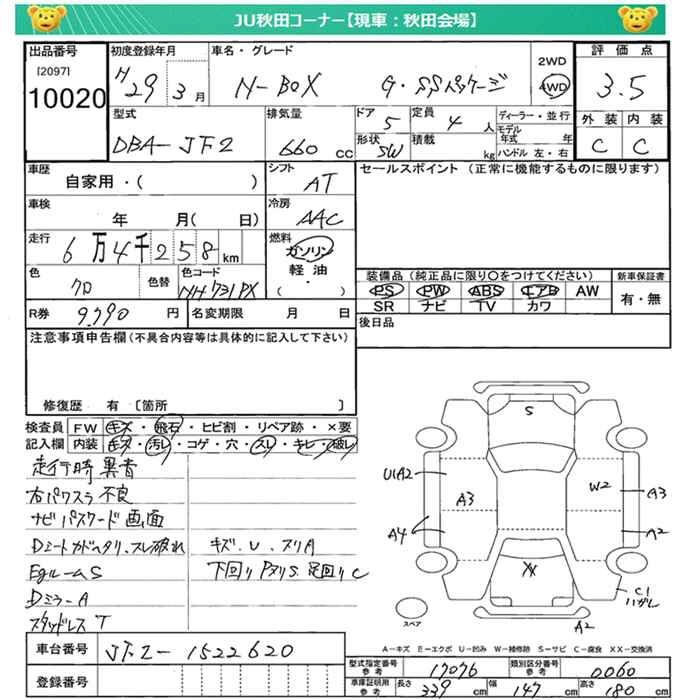 JU秋田コーナー【現車：秋田会場】
出品番号
[2097]
10020
初度登録年月
H29 3月
車名・グレード
N-BOX G・SSパッケージ
2WD
4WD
評価点
3.5
外装 内装
C C
型式
DBA-JF2
排気量
660 cc
ドア
5
形状
5W
定員
4 人
積載
kg
ディーラー・並行
モデル年式 年
ハンドル 左・右
車歴
自家用・( )
シフト
AT
セールスポイント (正常に機能するものに限ります)
車検
年 月( 日)
冷房
AAC
走行
6万4千258km
燃料
ガソリン
軽油
( ・ )
色
クロ
色替
色コード
NH731PX
装備品 (純正品に限り〇をつけてください)
PS PW ABS エアB AW
SR ナビ TV カワ
新車保証書
有・無
R券 9,990 円
名変期限 月 日
後日品
注意事項申告欄(不具合内容等は具体的に記入して下さい)
修復歴 有 〔箇所 〕
検査員記入欄
FW キズ・飛石・ヒビ割・リペア跡・×要
内装 キズ・汚レ・コゲ・穴・スレ・キレ・破レ
走行時 異音
右パワスラ 不良
ナビ パスワード 画面
Dシートガドヘタリ、スレ破れ
EgルームS
Dミラー A
スタッドレス T
キズ、U、スリA
下回りPヌリS 足回りC
S
U1A2
A3
A4
W2
A3
A2
XX
C1
ハガレ
A2
スペア
A－キズ E－エクボ U－凹み W－補修跡 S－サビ C－腐食 XX－交換済
車台番号
JF2-1522620
登録番号
型式指定番号
参考
17076
類別区分番号
参考
0060
車庫証明用
参考
長さ 339 cm
幅 147 cm
高さ 180 cm